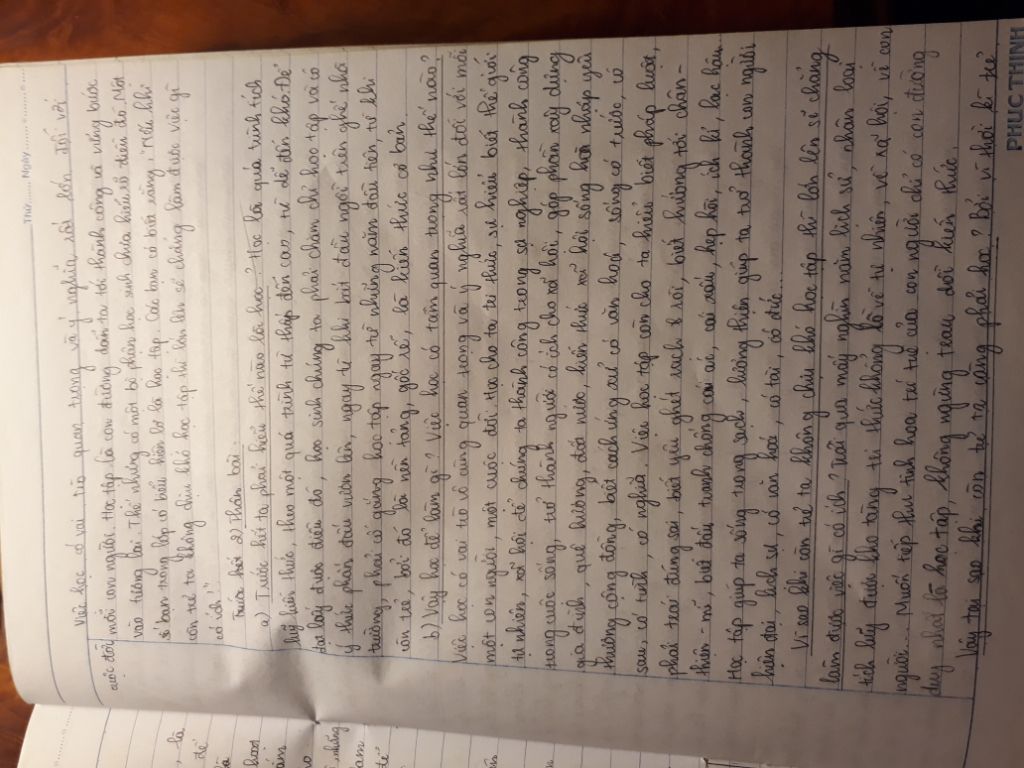 Thứ........ Ngày........
Việc học có vai trò quan trọng và ý nghĩa rất lớn đối với
cuộc đời mỗi con người. Học tập là con đường dẫn ta tới thành công và vững bước
vào tương lai. Thế nhưng có một bộ phận học sinh chưa hiểu rõ điều đó. Một
số bạn trong lớp có biểu hiện lơ là học tập. Các bạn có biết rằng, "Nếu khi
còn trẻ ta không chịu khó học tập thì lớn lên sẽ chẳng làm được việc gì
có ích".
Trước hết 2) Thân bài.
a) Trước hết ta phải hiểu thế nào là học? Học là quá trình tích
luỹ kiến thức, theo một quá trình từ thấp đến cao, từ dễ đến khó. Để
đạt được điều đó, học sinh chúng ta phải chăm chỉ học tập và có
ý thức phấn đấu vươn lên, ngay từ khi bắt đầu ngồi trên ghế nhà
trường, phải cố gắng học tập ngay từ những năm đầu tiên, từ khi
còn trẻ, bởi đó là nền tảng, gốc rễ, là kiến thức cơ bản.
b) Vậy học để làm gì? Việc học có tầm quan trọng như thế nào?
Việc học có vai trò vô cùng quan trọng và ý nghĩa rất lớn đối với mỗi
một con người, một cuộc đời. Học cho ta tri thức, sự hiểu biết thế giới
tự nhiên, xã hội để chúng ta thành công trong sự nghiệp, thành công
trong cuộc sống, trở thành người có ích cho xã hội, góp phần xây dựng
gia đình, quê hương, đất nước, kiến thiết xã hội sống hoà nhập yêu
thương cộng đồng, biết cách ứng xử có văn hoá, sống có trước, có
sau, có tình, có nghĩa. Việc học tập còn cho ta hiểu biết pháp luật,
phải trái đúng sai, biết yêu ghét rạch ròi, biết hướng tới chân -
thiện - mĩ, biết đấu tranh chống cái ác, cái xấu, hẹp hòi, ích kỉ, lạc hậu...
Học tập giúp ta sống trong sạch, lương thiện giúp ta trở thành con người
hiện đại, lịch sự, có văn hoá, có tài, có đức...
Vì sao khi còn trẻ ta không chịu khó học tập thì lớn lên sẽ chẳng
làm được việc gì có ích? Trải qua mấy nghìn năm lịch sử, nhân loại
tích luỹ được kho tàng tri thức khổng lồ về tự nhiên, về xã hội, về con
người... Muốn tiếp thu tinh hoa trí tuệ của con người chỉ có con đường
duy nhất là học tập, không ngừng trau dồi kiến thức.
Vậy tại sao khi còn trẻ ta càng phải học? Bởi vì thời kì trẻ
PHUC THINH